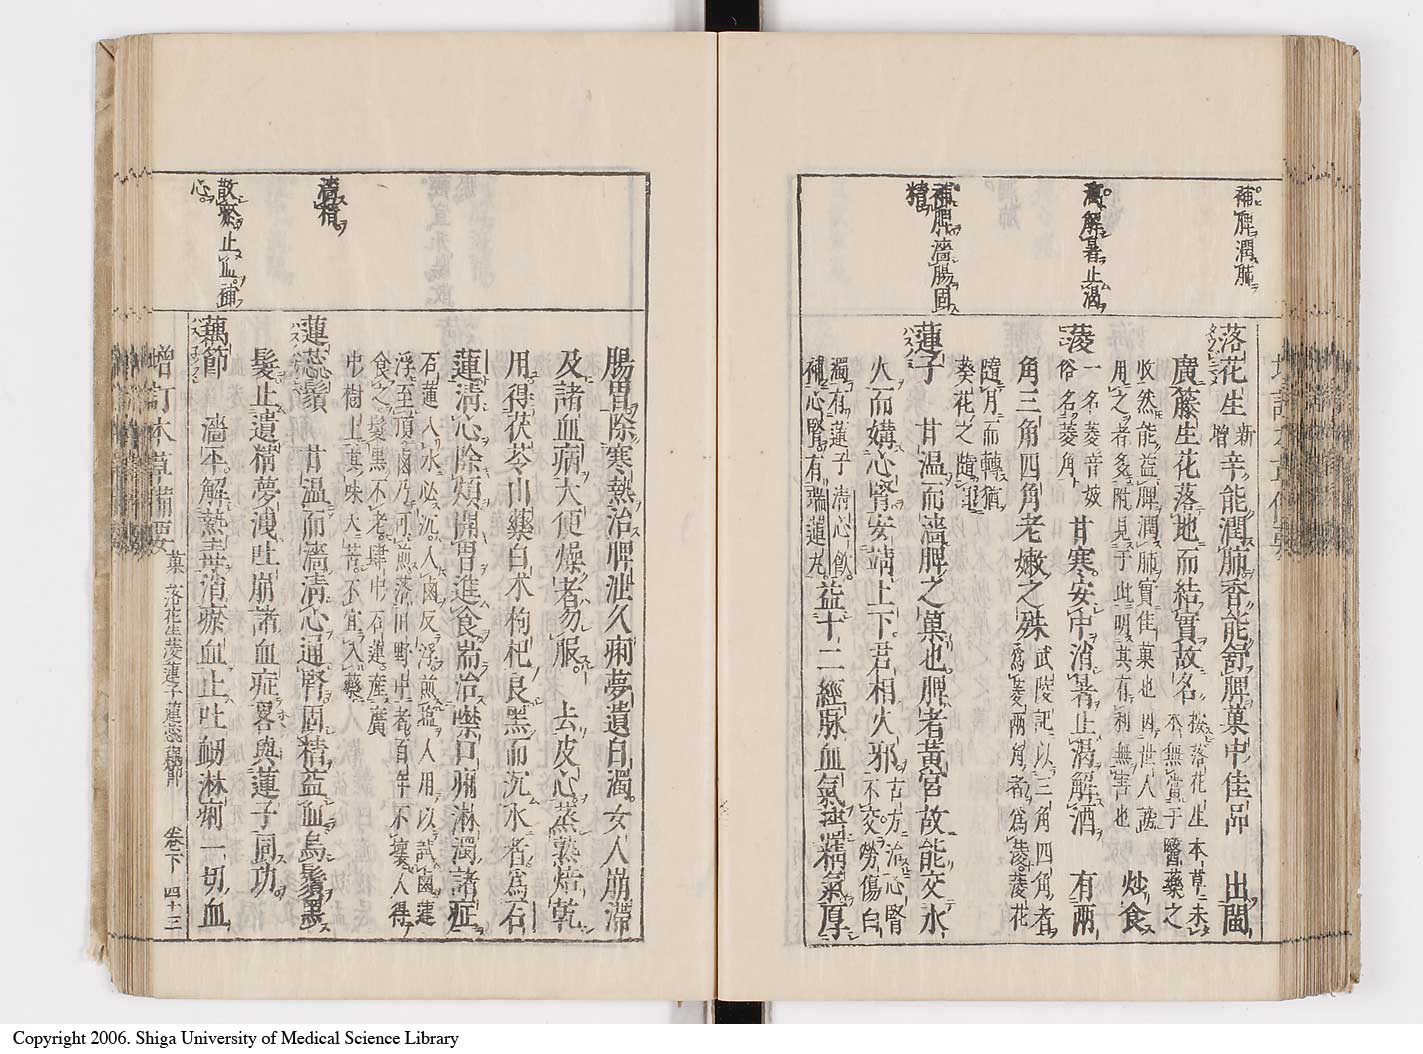 補脾潤肺
落花生新增辛能潤肺香能舒脾菓中佳品　出閩
廣藤生花落地而結實故名按落花生本草未
本無嘗于醫藥之
收然能益脾潤肺實佳菓也因世人誤
用之者多附見于此明其有利無害也　炒食
瀉解暑止渴
蔆一名菱音妓
俗名菱角　甘寒安中消暑止渴解酒　有兩
角三角四角老嫩之殊武陵記以三角四角者
爲芰兩角者爲蔆蔆花
隨月而轉猶
葵花之隨
補脾濇腸固
精
蓮子　甘溫而濇脾之菓也脾者黃宮故能交水
火而媾心腎安靖上下君相火邪古方治心腎
不交勞傷白
濁有蓮子清心飲
補心腎有瑞蓮丸益十二經脉血氣濇精氣厚
腸胃除寒熱治脾泄久痢夢遺白濁女人崩滯
及諸血病大便燥者勿服　去皮心蒸熟焙乾
用得茯苓山藥白朮枸杞良黑而沉水者爲石
蓮清心除煩開胃進食耑治噤口痢淋濁諸症
石蓮入水必沉入鹵反浮煎鹽人用以試鹵蓮
浮至頂鹵乃可煎落田野中者百年不壞人得
食之髮黑不老肆中石蓮產廣
中樹上其味大苦不宜入藥
濇精
蓮蕊鬚　甘溫而濇清心通腎固精益血烏鬚黑
髮止遺精夢洩吐崩諸血症畧與蓮子同功
散瘀止血補
心
藕節　濇平解熱毒消瘀血止吐衂淋痢一切血
增訂本草備要　菓　落花生蔆蓮子蓮蕊藕節　卷下　四十三
Copyright 2006. Shiga University of Medical Science Library